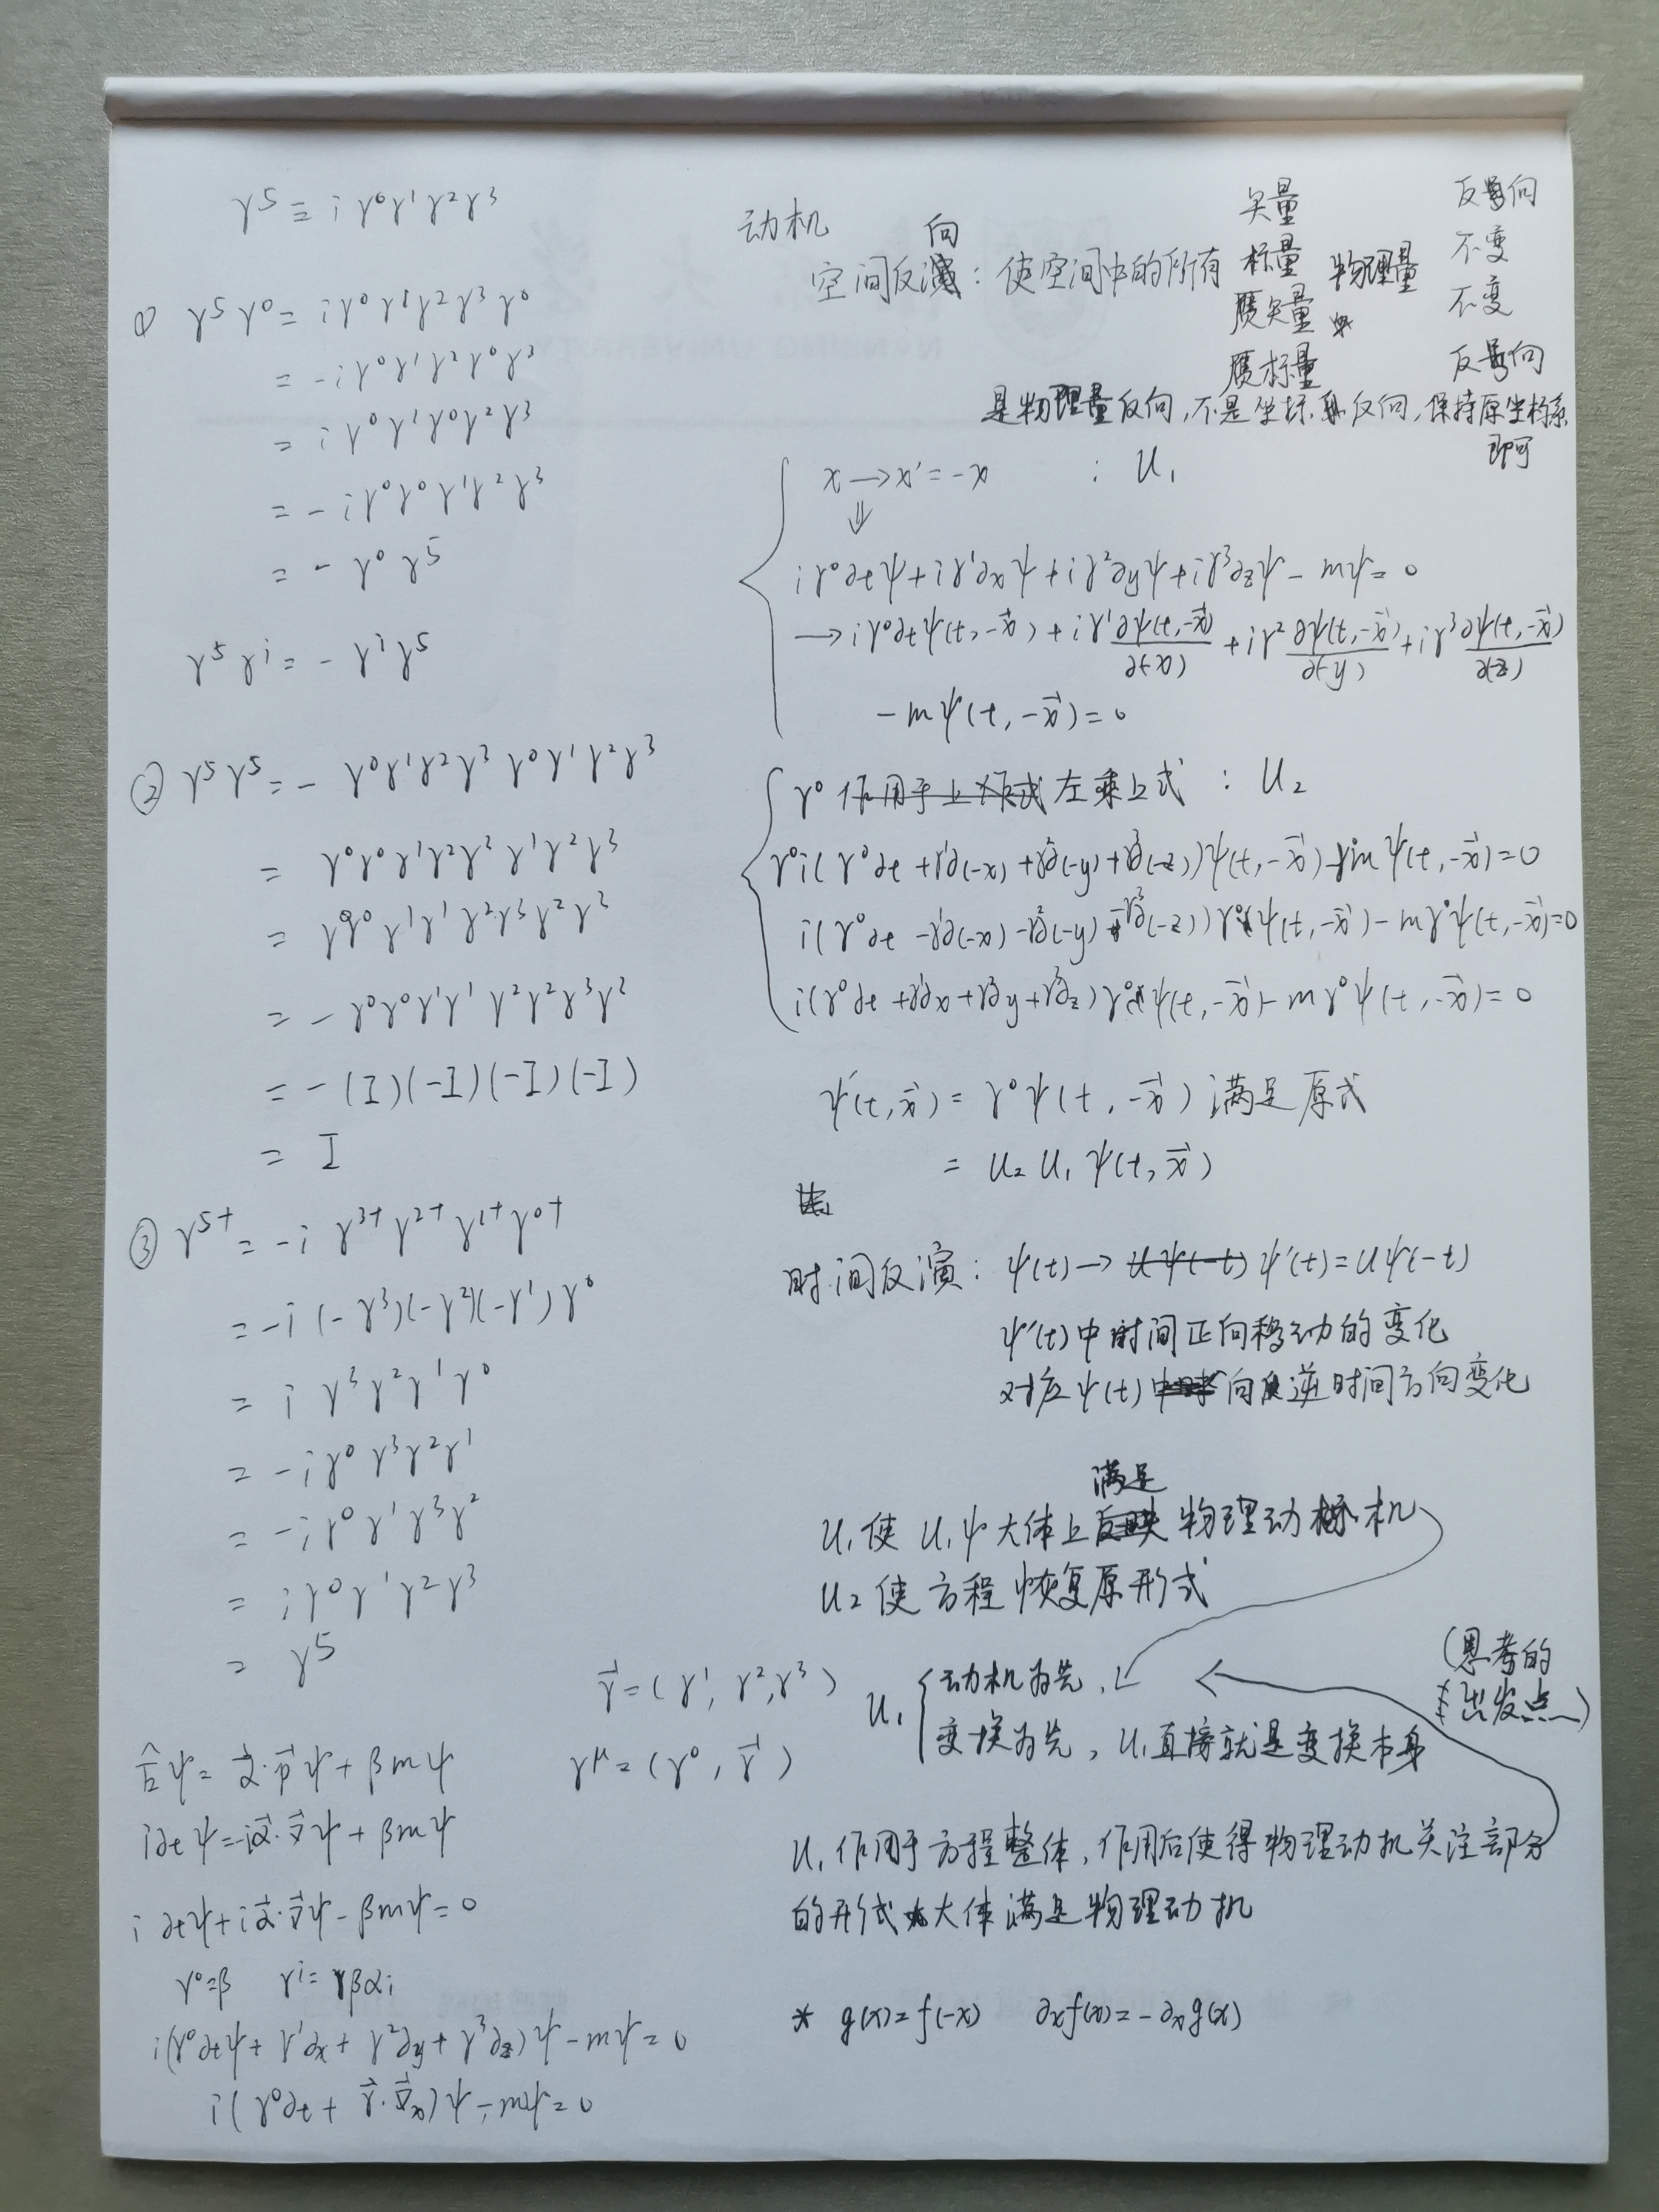 γ⁵ ≡ iγ⁰γ¹γ²γ³
① γ⁵γ⁰ = iγ⁰γ¹γ²γ³γ⁰
= -iγ⁰γ¹γ²γ⁰γ³
= iγ⁰γ¹γ⁰γ²γ³
= -iγ⁰γ⁰γ¹γ²γ³
= -γ⁰γ⁵
γ⁵γⁱ = -γⁱγ⁵
② γ⁵γ⁵ = -γ⁰γ¹γ²γ³γ⁰γ¹γ²γ³
= γ⁰γ⁰γ¹γ²γ³γ¹γ²γ³
= γ⁰γ⁰γ¹γ¹γ²γ³γ²γ³
= -γ⁰γ⁰γ¹γ¹γ²γ²γ³γ³
= -(I)(-I)(-I)(-I)
= I
③ γ⁵† = -iγ³†γ²†γ¹†γ⁰†
= -i(-γ³)(-γ²)(-γ¹)γ⁰
= iγ³γ²γ¹γ⁰
= -iγ⁰γ³γ²γ¹
= -iγ⁰γ¹γ³γ²
= iγ⁰γ¹γ²γ³
= γ⁵
γ⃗ = (γ¹, γ², γ³)
γ^μ = (γ⁰, γ⃗)
Êψ = α⃗·p⃗ψ + βmψ
i∂tψ = -iα⃗·∇⃗ψ + βmψ
i∂tψ + iα⃗·∇⃗ψ - βmψ = 0
γ⁰=β γⁱ=βαi
i(γ⁰∂tψ + γ¹∂x + γ²∂y + γ³∂z)ψ - mψ = 0
i(γ⁰∂t + γ⃗·∇⃗x)ψ - mψ = 0
动机
空间反向: 使空间中的所有 物理量
矢量 反向
标量 不变
赝矢量 不变
赝标量 反向
是物理量反向,不是坐标系反向,保持原坐标系
即可
x→x'=-x : U₁
⇓
iγ⁰∂tψ + iγ¹∂xψ + iγ²∂yψ + iγ³∂zψ - mψ = 0
→iγ⁰∂tψ(t,-x⃗) + iγ¹ ∂ψ(t,-x⃗)/∂(-x) + iγ² ∂ψ(t,-x⃗)/∂(-y) + iγ³ ∂ψ(t,-x⃗)/∂(-z)
-mψ(t,-x⃗)=0
γ⁰ 左乘上式 : U₂
γ⁰i(γ⁰∂t + γ¹∂(-x) + γ²∂(-y) + γ³∂(-z))ψ(t,-x⃗) - γ⁰mψ(t,-x⃗)=0
i(γ⁰∂t - γ¹∂(-x) - γ²∂(-y) - γ³∂(-z))γ⁰ψ(t,-x⃗) - mγ⁰ψ(t,-x⃗)=0
i(γ⁰∂t + γ¹∂x + γ²∂y + γ³∂z)γ⁰ψ(t,-x⃗) - mγ⁰ψ(t,-x⃗)=0
ψ'(t,x⃗) = γ⁰ψ(t,-x⃗) 满足原式
= U₂U₁ψ(t,x⃗)
时间反演: ψ(t)→ψ'(t)=Uψ(-t)
ψ'(t)中时间正向移动的变化
对应ψ(t)向逆时间方向变化
U₁使 U₁ψ大体上满足物理动机
U₂使方程恢复原形式
(思考的
出发点)
U₁ { 动机为先,
变换为先, U₁直接就是变换本身
U₁作用于方程整体,作用后使得物理动机关注部分
的形式大体满足物理动机
* g(x)=f(-x) ∂xf(x)=-∂xg(x)